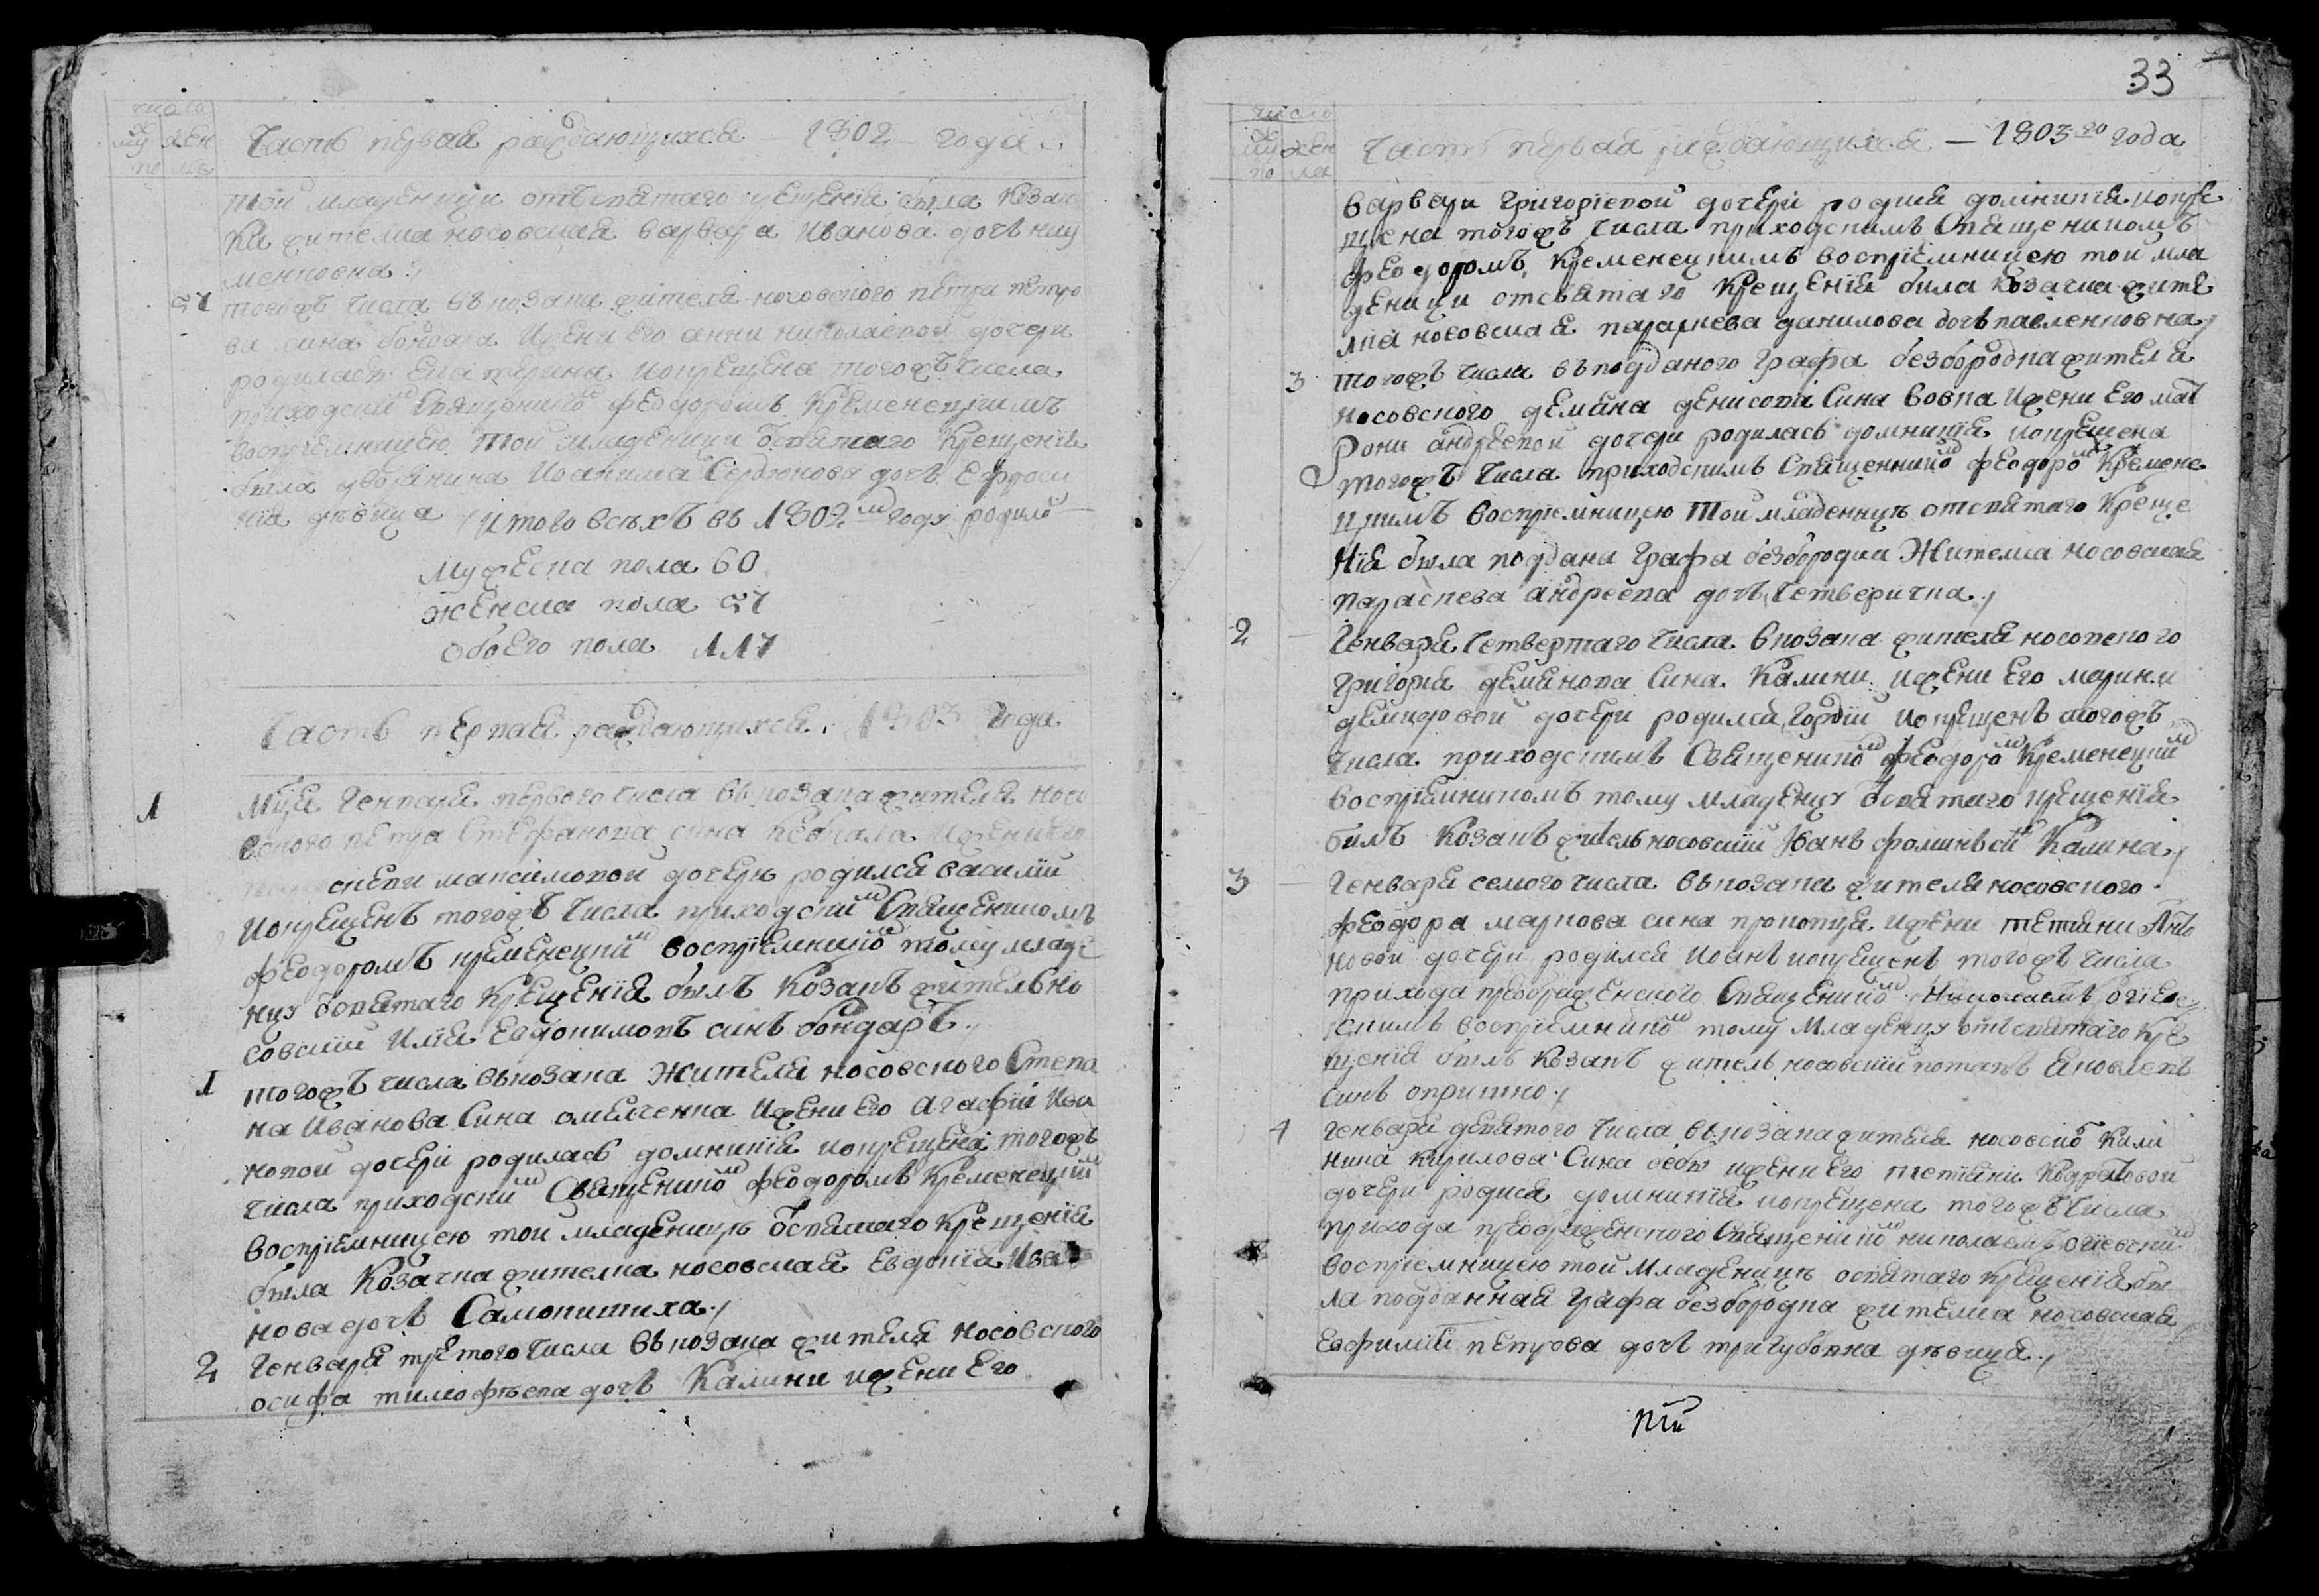 число
му жен
по ла
Часть первая раждающихся 1802 года
той младеницы отъ святаго крещенія была козач
ка жителка носовская варвара Иванова дочь
менковна
57 тогожъ числа въ козака жителя носовского петра петро
ва сина бондара Ижени его анни николаевой дочери
родилась екатерина и окрещена тогожъ числа
приходскимъ Священникомъ феодоромъ Кременецкимъ
воспріемницею той младеницы отсвятаго Крещенія
была дворянина Иоакима Сердюкова дочь Ефроси
нія дѣвица Итого всѣхъ въ 1802мъ году родило
Мужеска пола 60
женска пола 57
обоего пола 117
Часть первая раждающихся 1803 года
1 Мца Генваря первого числа въ козака жителя носо
вского петра Стефанова сина Ижени его
скеви максимовой дочерѣ родился василій
Иокрещенъ тогожъ числа приходским Священникомъ
феодоромъ кременецким воспріемником тому младе
нцу отсвятаго Крещенія былъ Козакъ жительно
совскій Илія Евдокимовъ синъ бондаръ
1 тогожъ числа въкозака Жителя носовского Степа
на Иванова Сина омелченка Ижени Его Агафіи Ива
новой дочери родилась домникія иокрещена тогожъ
числа приходским Священником феодоромъ Кременецким
воспріемницею той младеницѣ отсвятаго Крещенія
была Козачка жителка носовская Евдокія Ива
нова дочь Самопитиха
2 Генваря третого числа въ козака жителя носовского
осифа тимофѣева дочь Калини ижени Его
33
число
му жен
по ла
Часть первая раждающихся — 1803го года
варвари Григоріевой дочери родися домникія иокре
щена тогожъ числа приходскимъ Священикомъ
феодоромъ Кременецкимъ воспріемницею той мла
деници отсвятаго Крещенія била Козачка жите
лка носовская параскева данилова дочь павленковна
3 тогожъ числа въ подданого Графа безбородка жителя
носовского демяна денисова Сина Вовка Ижени Его мат
рони андреевой дочери родилась домникія иокрещена
тогожъ числа приходскимъ Священником феодором Кремене
цкимъ воспріемницею той младеницѣ отсвятаго Креще
нія была поддана Графа безбородка Жителка носовская
параскева андреева дочь Четверична
2 Генваря Четвертаго числа вкозака жителя носовского
Григорія деминова Сина Калини ижени Его марини
демидовой дочери родился Гордій иокрещенъ тогожъ
числа приходскимъ Священиком феодором Кременецким
воспріемникомъ тому младенцу отсвятаго крещенія
билъ Козакъ жителъносовскій Иванъ фоминъ Калина
3 Генваря семого числа въкозака жителя носовского
феодора маркова сина прокопця ижени тетяни Анто
новой дочери родился Иоанъ иокрещенъ тогожъ числа
прихода преображенского Священиком Николаемъ огіев
скимъ воспріемником тому младенцу отъсвятаго Кре
щенія былъ Козакъ житель носовскій потапъ яковлевъ
синъ опришко
4 Генваря девятого числа въкозакажителя носовско Кали
ника Кирилова Сина ижени Его тетіани Кодратовой
дочери родися домникія иокрещена тогожъ числа
прихода преображенского Священиком николаемъ огіевским
воспріемницею той младеницѣ отсвятаго крещенія бы
ла подданная Графа безбородка жителка носовская
Евфимія петрова дочь тригубовна дѣвица